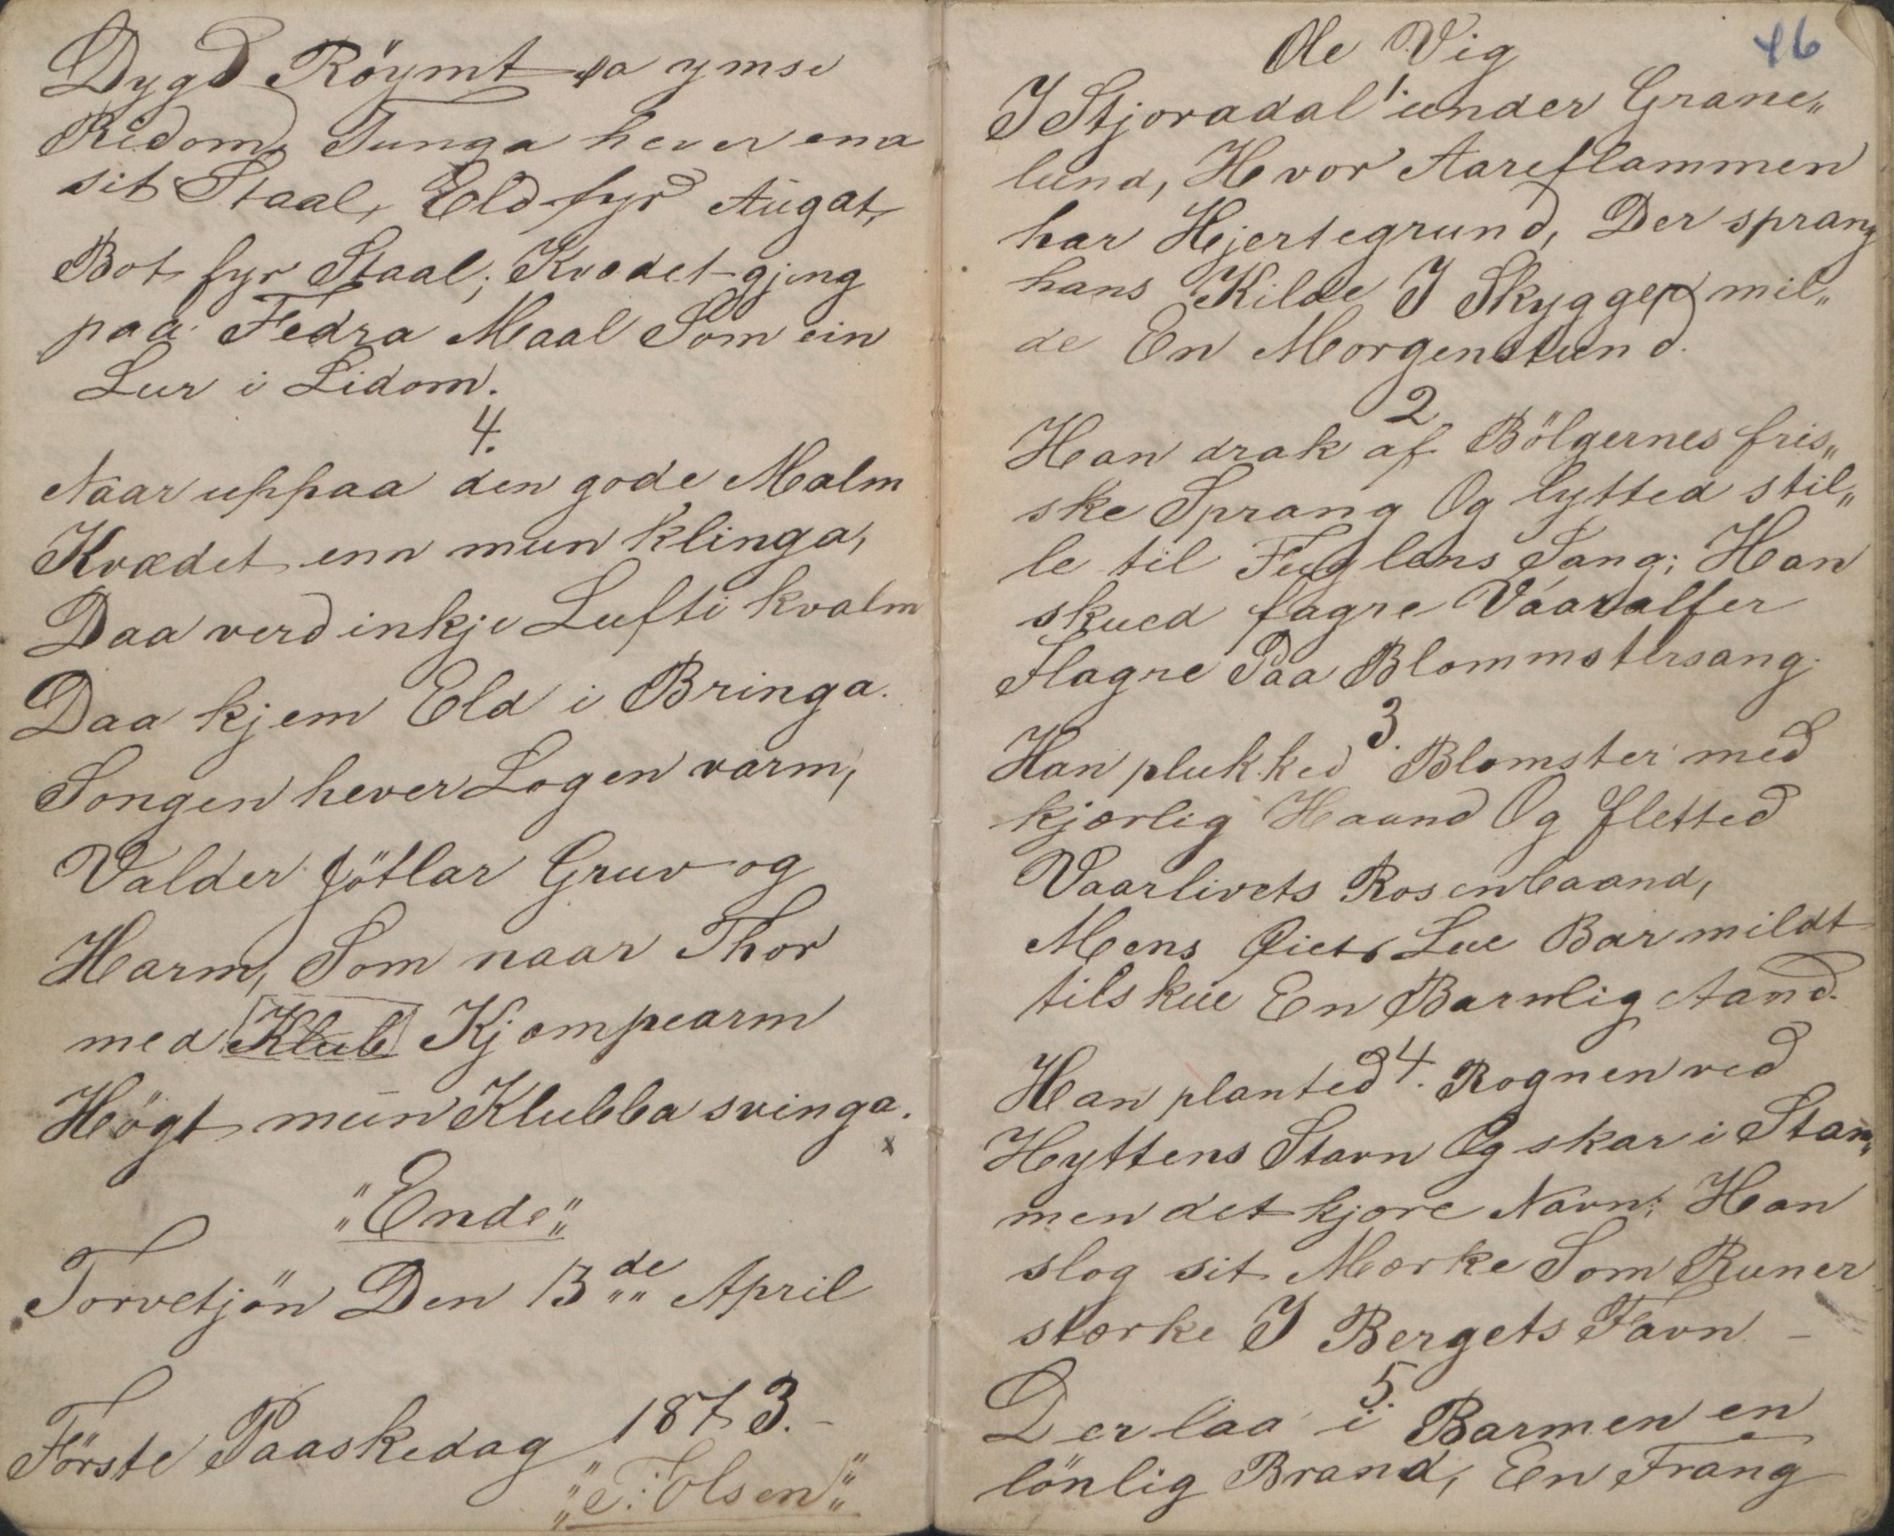 Dygd Röymt pa ymse
Ridom, Tunga hever ena
sit Staal, Eld fyr Augat,
Bot fyr Staal; Kvædet gjeng
paa Fedra Maal Som ein
Lur i Lidom.
4.
Naar uppaa den gode Malm
Kvædet enn mun klinga,
Daa verd inkje Lufti kvalm
Daa kjem Eld i Bringa.
Songen hever Logen varm,
Valder jötlar Gruv og
Harm, Som naar Thor
med Klub Kjæmpearm
Högt mun Klubba svinga.
x
"Ende"
Torvetjön Den 13de April
1873.-
Förste Paaskedag
"T: Olsen"
Ole Vig
46
1.
I Stjoradal under Grane"
lund, Hvor Aareflammen
har Hjertegrund, Der sprang
hans Kilde I Skyggen mil"
de En Morgenstund.
2
Han drak af Bölgernes fris"
ske Sprang Og lytted stil"
le til Fuglens Sang; Han
skued fagre Vaaralfer
Flagre Paa Blommstersang.
3.
Han plukked Blomster med
kjærlig Haand Og fletted
Vaarlivets Rosenbaand,
Mens Øiets Lue Bar mildt
tilskue En Barnlig Aand.
4.
Han planted Rognen ved
Hyttens Stavn Og skar i Stam"
men det kjære Navn; Han
slog sit Mærke Som Runer
stærke I Bergets Favn -
5.
Der laa i Barmen en
lönlig Brand, En Trang